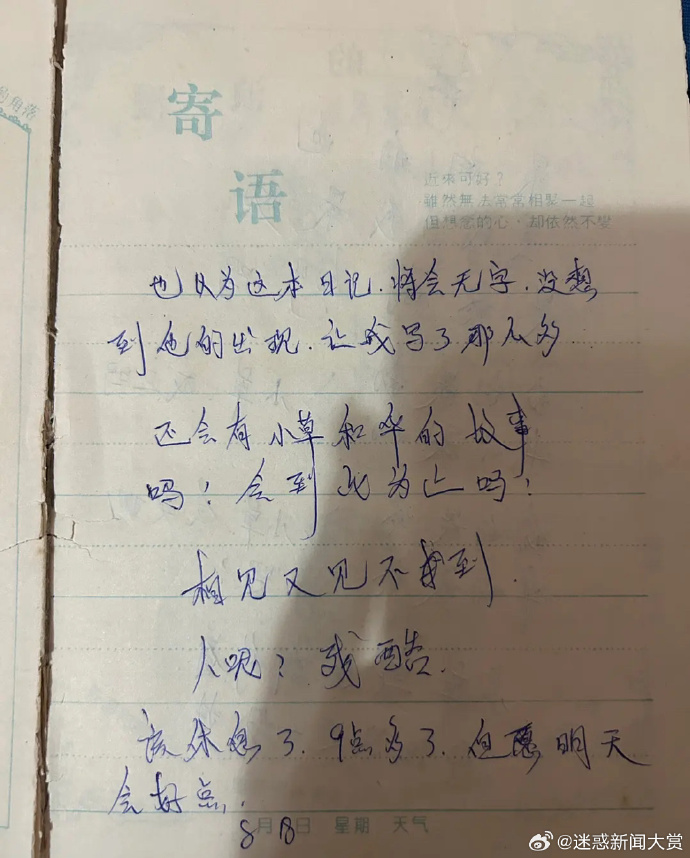 的角落
寄
语
近來可好？
雖然無法常常相聚一起
但想念的心，却依然不變
也以为这本日记.将会无字.没想
到他的出现.让我写了那么多
还会有小草和华的故事
吗！会到此为止吗！
相见又见不到
人呢？残酷.
该休息了.9点多了.但愿明天
会好点.
8月18日 星期 天气
@迷惑新闻大赏